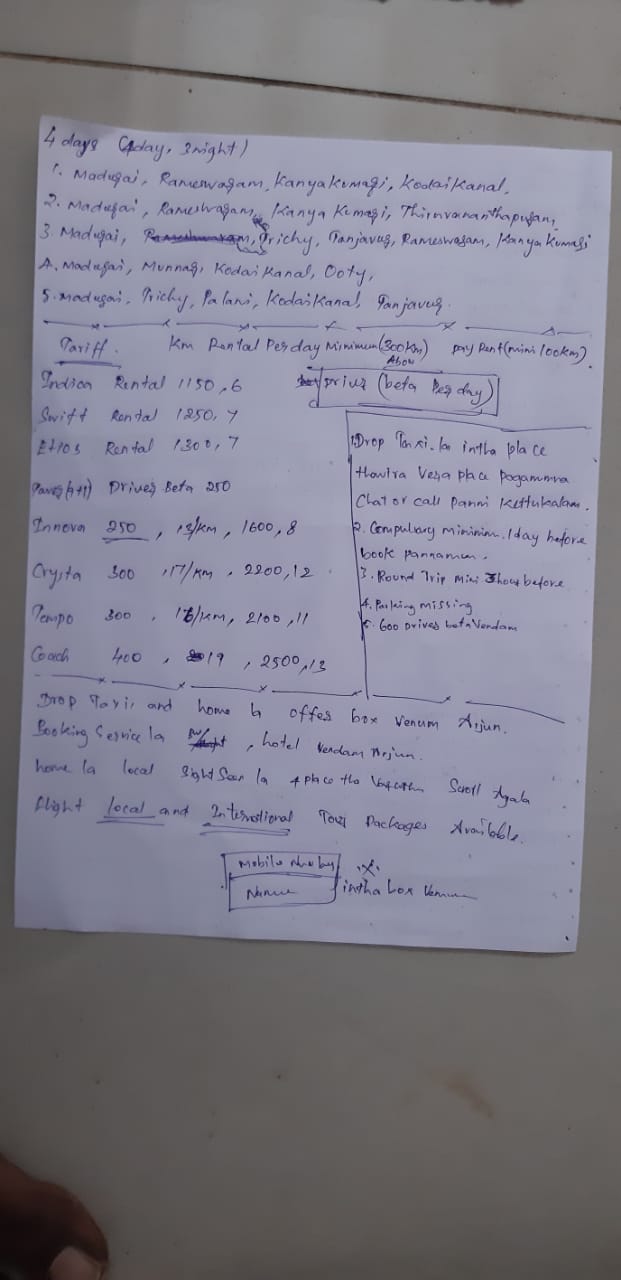 4 days (4day, 3night)
1. Madugai, Rameswagam, Kanyakumagi, Kodaikanal.
2. Madugai, Rameshwagam, Kanya Kumagi, Thiruvananthapugam,
3. Madugai, Trichy, Tanjavug, Rameswagam, Kanya Kumagi
4. Madugai, Munnag, Kodaikanal, Ooty,
5. Madugai, Trichy, Palani, Kodaikanal, Tanjavug.
Tariff. Km Rental Perday Minimum (300km) pay Rent (mini 100km).
Above
Indica Rental 1150, 6
driver (beta Per day)
Swift Rental 1250, 7
Etios Rental 1300, 7
(4+1) Driver Beta 250
Innova 250, 13/km, 1600, 8
Crysta 300, 17/km, 2200, 12
Tempo 300, 16/km, 2100, 11
Coach 400, 19, 2500, 13
1. Drop Taxi la intha place
thavira Vera place Pogamma
Chat or call Panni Kettukalam.
2. Compulsary minimim 1day before
book pannanum.
3. Round Trip Mini 3hour before
4. Parking missing
5. 600 driver beta Vendam
Drop Taxi, and home la offer box Venum Arjun.
Booking Service la, hotel Vendam Arjun.
home la local Sight Seen la 4 place tha Scroll Agala
flight local and International Tour Packages Available.
Mobile Number
Name
intha box Venum